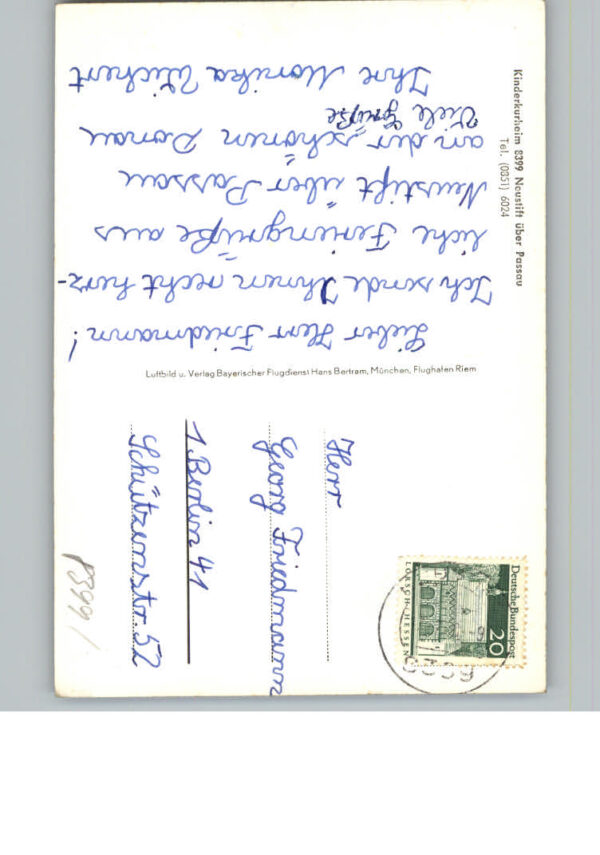 Kinderkurheim 8399 Neustift über Passau
Tel. (0851) 6024
Lieber Herr Friedmann!
Ich sende Ihnen recht herz-
liche Feriengrüße aus
Neustift über Passau
an der schönen Donau
Viele Grüße
Ihre Monika
Luftbild u. Verlag Bayerischer Flugdienst Hans Bertram, München, Flughafen Riem
Herr
Georg Friedmann
1 Berlin 41
Schützenstr. 52
Deutsche Bundespost
20
LORSCH/HESSEN